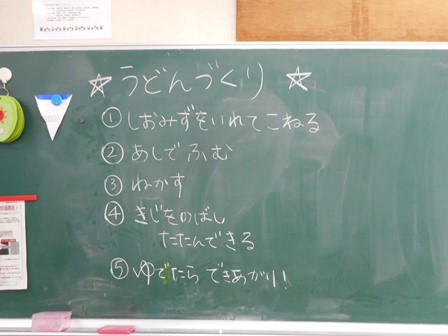 ☆うどんづくり☆
①しおみずをいれてこねる
②あしでふむ
③ねかす
④きじをのばし
たたんできる
⑤ゆでたらできあがり!